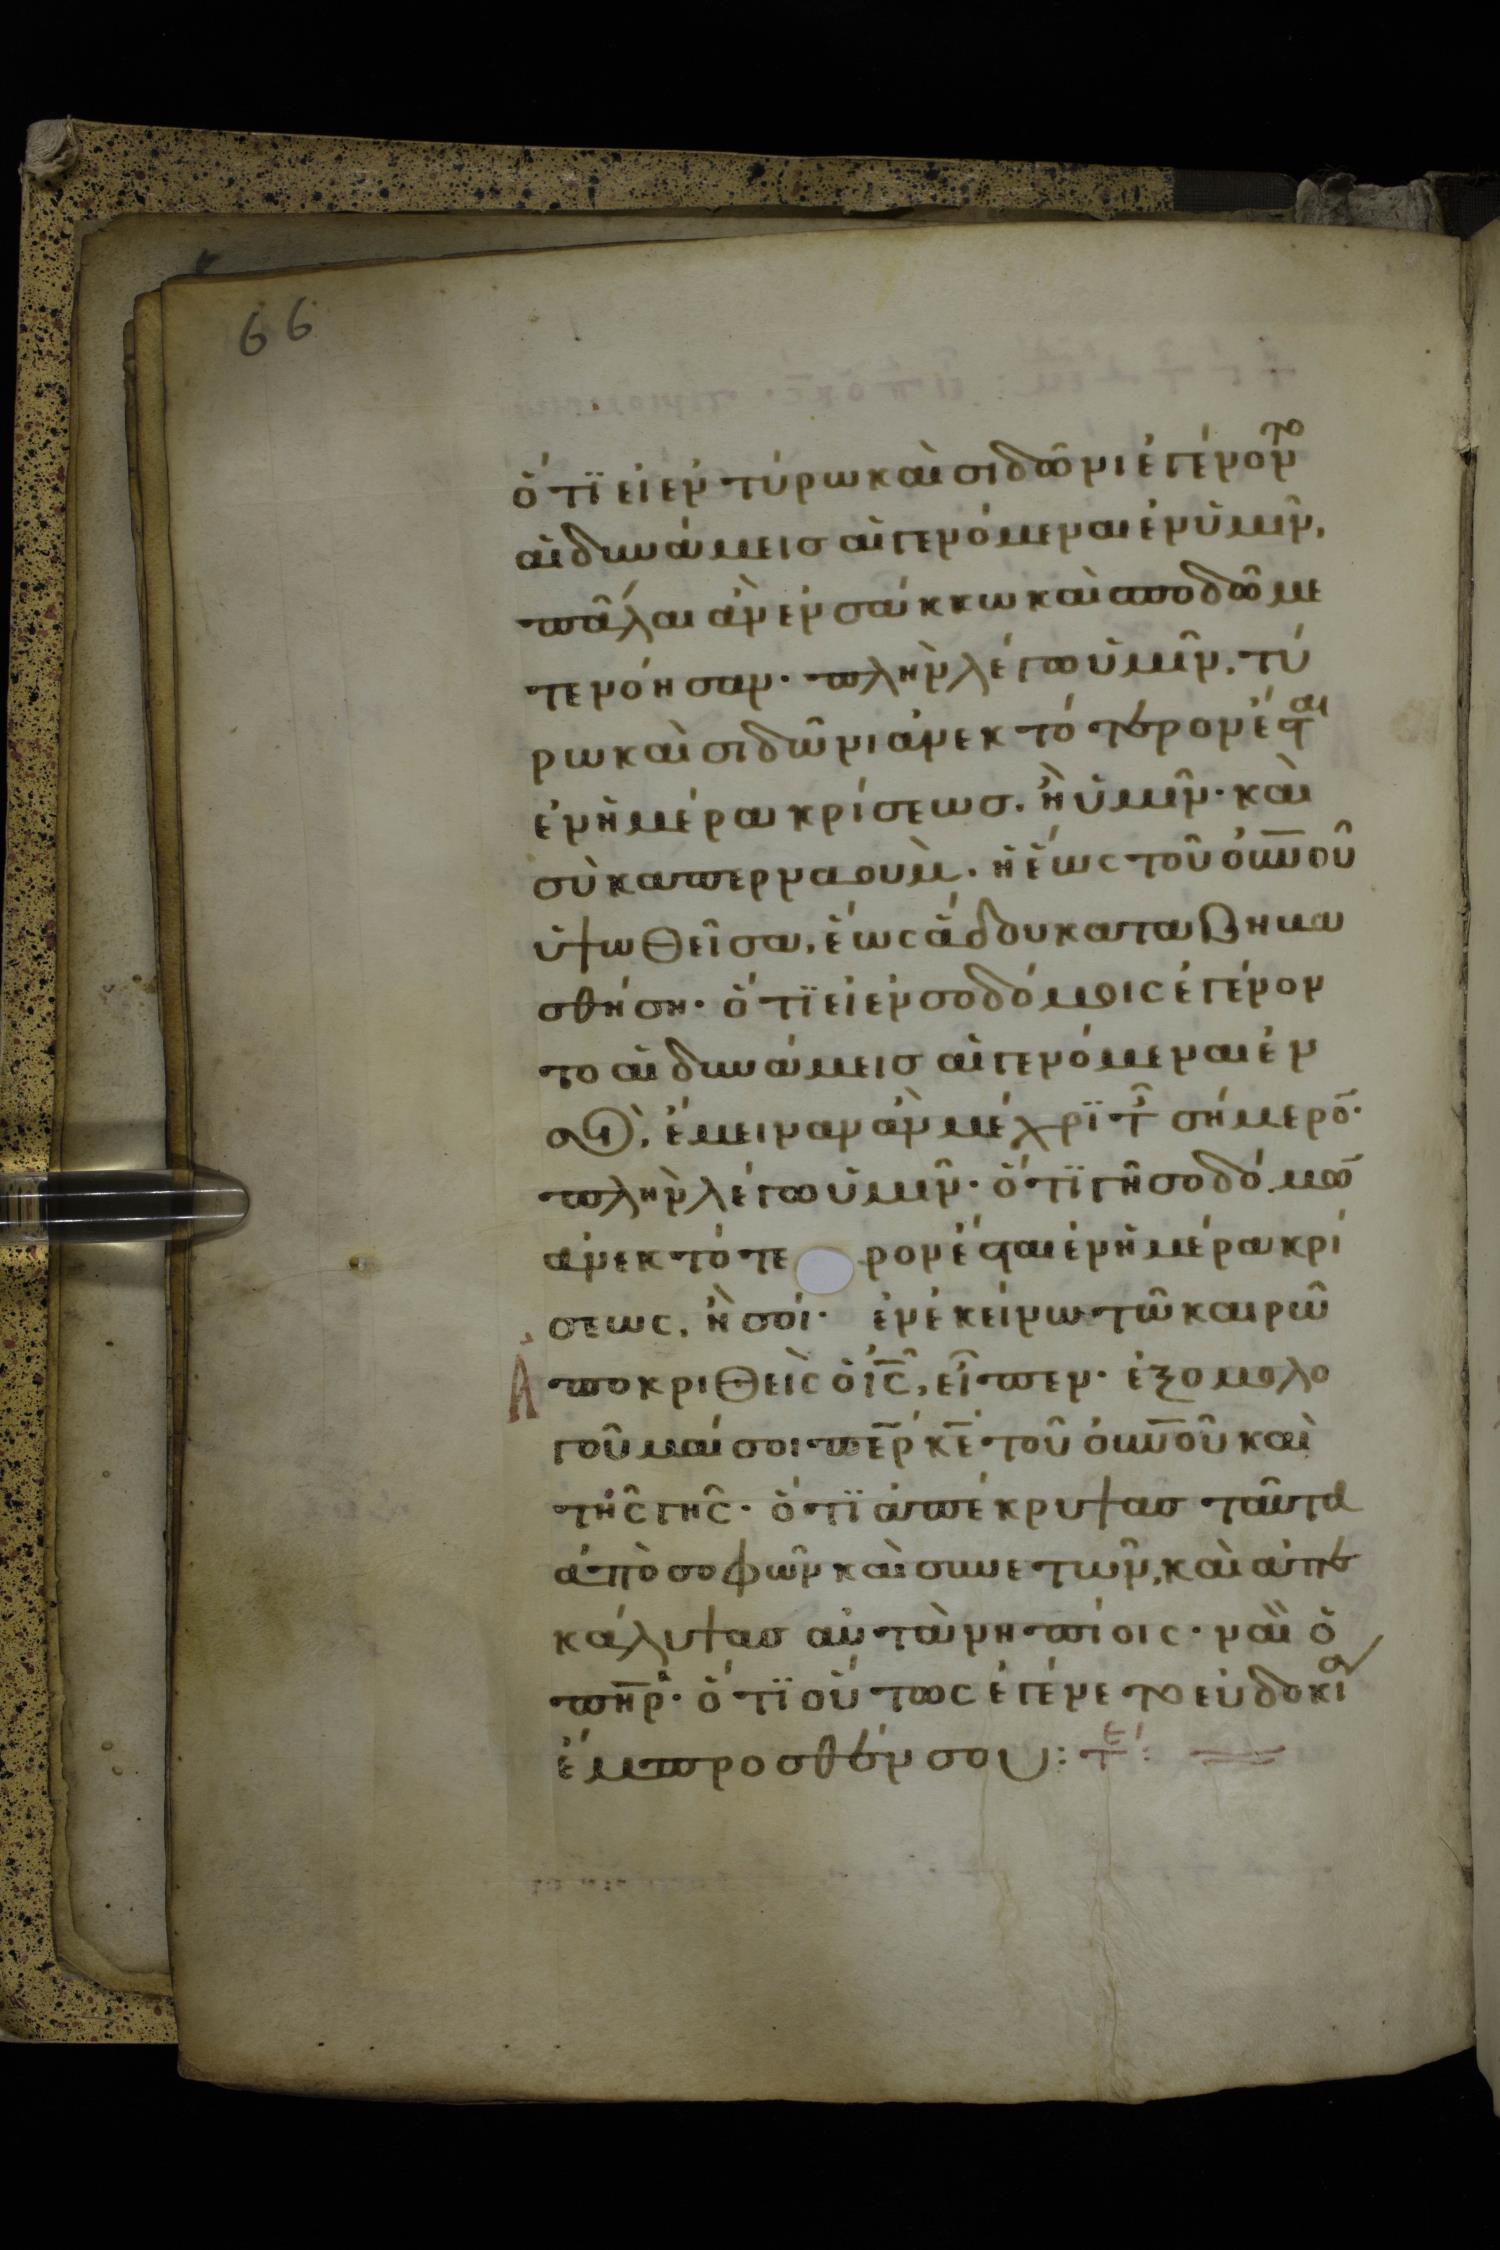 66
ὅτϊ εἰ ἐν τύρω καὶ σιδῶνι ἐγένον̅το
αἱ δυνάμεισ αἱ γενόμεναι ἐν ὑμῖν,
πάλαι ἂν ἐν σάκκω καὶ σποδῶ με
τενόησαν· πλὴν λέγω ὑμῖν, τύ
ρω καὶ σιδῶνι ἀνεκτότερον ἔσται
ἐν ἡμέρα κρίσεωσ, ἢ ὑμῖν· καὶ
σὺ καπερναούμ, ἡ ἕως τοῦ οὐ̅ν̅οῦ
ὑψωθεῖσα, ἕως ἅδου καταβηβα
σθήση· ὅτϊ εἰ ἐν σοδόμοις ἐγένον
το αἱ δυνάμεισ αἱ γενόμεναι ἐν
σοὶ, ἔμειναν ἂν μέχρϊ τῆς σήμερο̅·
πλὴν λέγω ὑμῖν· ὅτϊ γῆ σοδόμω̅
ἀνεκτότερον ἔσται ἐν ἡμέρα κρί
σεως, ἢ σοί· ἐν ἐκείνω τῶ καιρῶ
ἀποκριθεὶς ὁ ι̅ς̅, εἶπεν· ἐξομολο
γοῦμαί σοι π̅ε̅ρ̅ κ̅ε̅ τοῦ οὐ̅ν̅οῦ καὶ
τῆς γῆς· ὅτϊ ἀπέκρυψασ ταῦτα
ἀπὸ σοφῶν καὶ συνετῶν, καὶ ἀπε
κάλυψασ αὐτὰ νηπίοις· ναὶ ὁ
π̅η̅ρ̅· ὅτϊ οὕτως ἐγένετο εὐδοκία
ἔμπροσθέν σου: τέ: